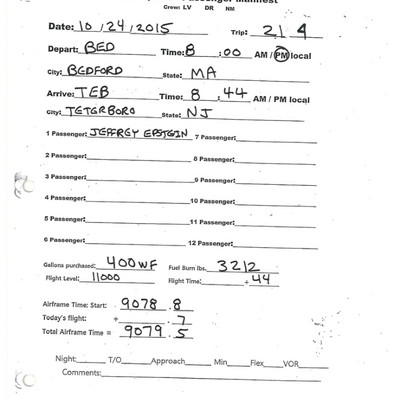 Passenger Manifest
Crew: LV DR NM
Date: 10/24/2015 Trip: 21 4
Depart: BED Time: 8:00 AM / PM local
City: BEDFORD State: MA
Arrive: TEB Time: 8:44 AM / PM local
City: TETERBORO State: NJ
1 Passenger: JEFFREY EPSTEIN 7 Passenger:
2 Passenger: 8 Passenger:
3 Passenger: 9 Passenger:
4 Passenger: 10 Passenger:
5 Passenger: 11 Passenger:
6 Passenger: 12 Passenger:
Gallons purchased: 400WF Fuel Burn lbs. 3212
Flight Level: 11000 Flight Time: +44
Airframe Time: Start: 9078.8
Today's flight: + .7
Total Airframe Time = 9079.5
Night: T/O Approach Min Flex VOR
Comments: